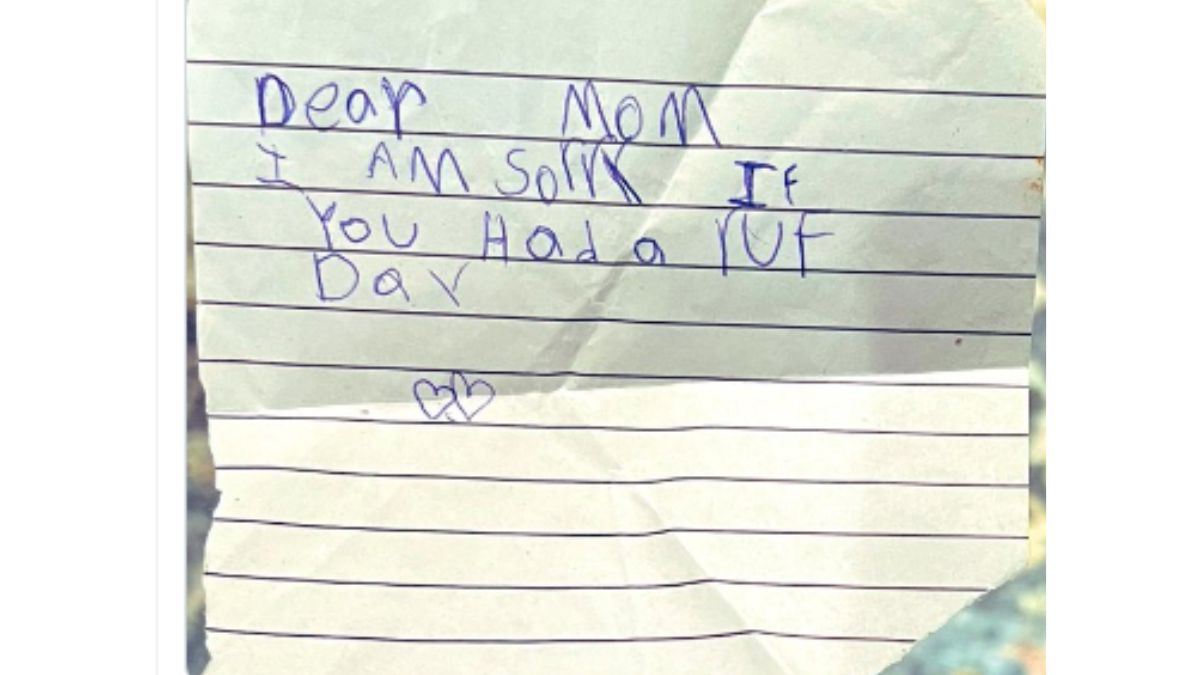 Dear Mom
I AM Sorr If
You Had a ruf
Day